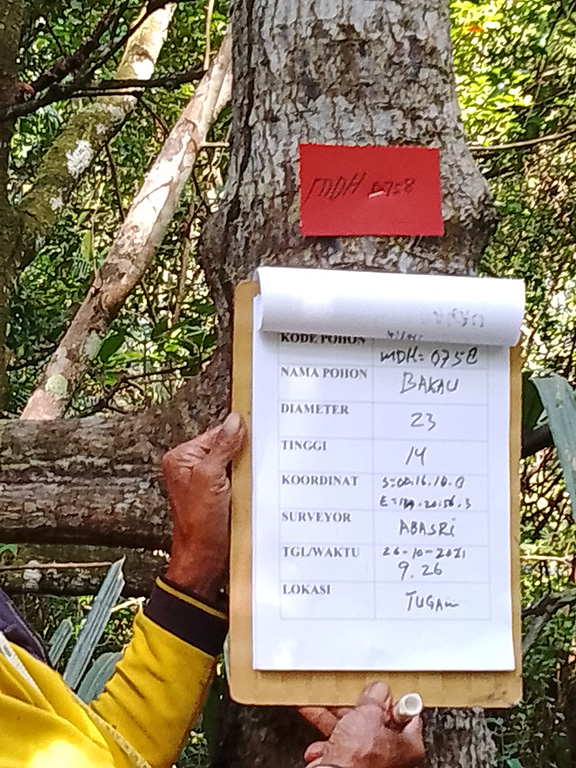 MDH 0758
KODE POHON MDH= 0758
NAMA POHON BAKAU
DIAMETER 23
TINGGI 14
KOORDINAT
SURVEYOR ABASRi
TGL/WAKTU 26-10-2021
9.26
LOKASI